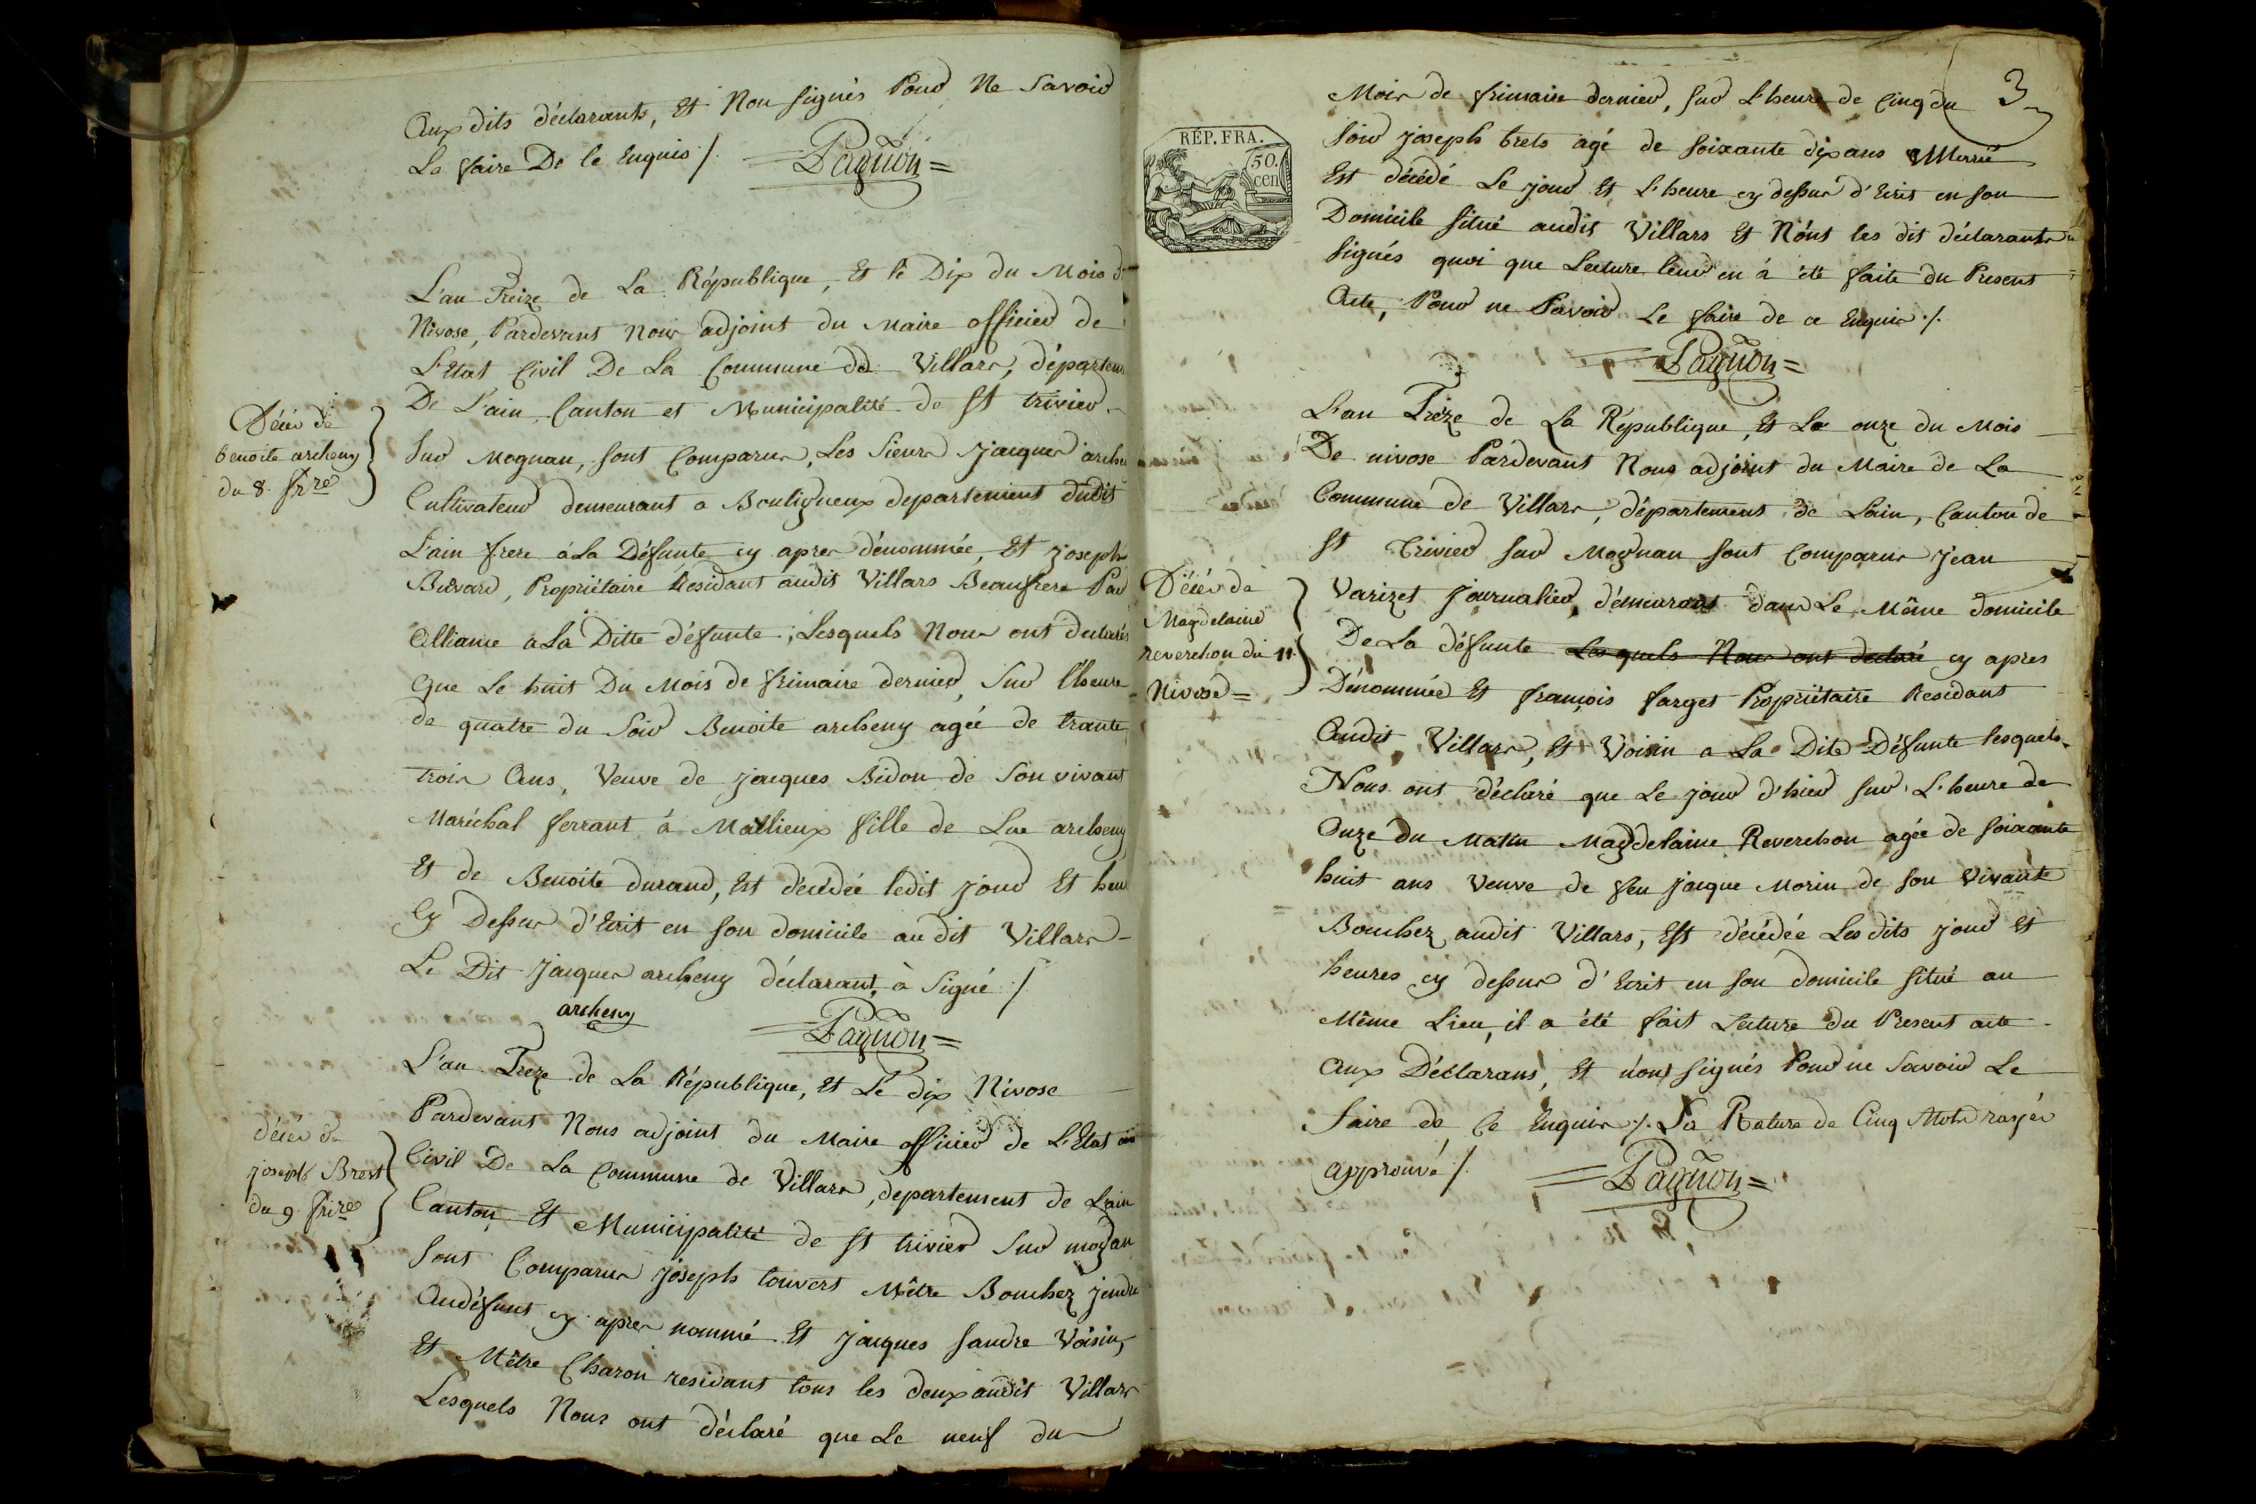 Aux dits déclarants, Et Non signés Pour Ne Savoir
Le faire De le Enquis /. Pagnon =
L'an Treize de La République, Et le Dix du Mois d
Nivose, Pardevant Nous adjoint du Maire officier de
L'Etat Civil De La Commune de Villars, départem
De L'ain, Canton et Municipalité de St trivier
Décès de
benoite archeny
du 8. frre
Sur Mognan, sont Comparus, Les Sieurs Jacques arche
Cultivateur demeurant a Bouligneux departement dudit
L'ain frere à La Défunte cy apres dénommée, Et joseph
Buvard, Propriétaire Residant audit Villars Beaufrere Par
alliance a La Ditte défunte, Lesquels Nous ont declarés
Que Le huit Du Mois de frimaire dernier, Sur l'heure
de quatre du Soir Benoite archeny agée de trante
trois Ans, Veuve de jacques Bidon de Son vivant
Maréchal ferrant à Mallieux fille de Luc archeny
Et de Benoite durand, Est décédée ledit jour Et heu
Cy Dessus d'Ecrit en son domicile au dit Villars
Le Dit Jacques archeny déclarant, à Signé /
archeny Pagnon =
L'an Treze de La République, Et Le dix Nivose
Pardevant Nous adjoint du Maire officier de L'Etat
décès de
joseph Brest
du 9 frire
Civil De La Commune de Villars, departement de Lain
Canton, Et Municipalité de St trivier Sur mognan
Sont Comparus joseph touvert Mêtre Boucher jendre
Audéfunt cy apres nommé Et jacques Sandre Voisin,
Et Mêtre Charon residant tous les deux audit Villars
Lesquels Nous ont déclaré que Le neuf du
3
RÉP. FRA.
50.
cen
Mois de frimaire dernier, sur L'heure de Cinq du
Soir joseph brets agé de soixante dix ans
Est décédé Le jour Et L'heure cy dessus d'Ecrit en son
Domicile situé audit Villars Et N'ont les dit déclarants
signés quoi que Lecture leur en à été faite du Present
Acte, Pour ne Savoir Le faire de ce Enquis /.
Pagnon =
L'an Trèze de La République, Et Le onze du Mois
De nivose Pardevant Nous adjoint du Maire de La
Commune de Villars, département de Lain, Canton de
St Trivier sur Mognan sont Comparus Jean
Décès de
Magdelaine
reverchon du 11
Nivose =
Varizet Journalier, démeurant dans Le Même domicile
De La défunte Lesquels Nous ont declaré cy apres
Dénommée Et françois farget Propriétaire Residant
Audit Villars, Et Voisin a La Dite Défunte lesquels
Nous ont déclaré que Le jour d'hier sur L'heure de
Onze du Matin Magdelaine Reverchon agée de soixante
huit ans Veuve de feu jacque Morin de son Vivante
Boucher audit Villars, Est décédée Les dits jour Et
heures cy dessus d'Ecrit en son domicile situé au
Même Lieu, il a été fait Lecture du Present acte
Aux Déclarans, Et n'ont signés Pour ne Savoir Le
faire de Ce Enquis /. La Rature de Cinq Mots rayés
approuvé /. Pagnon =